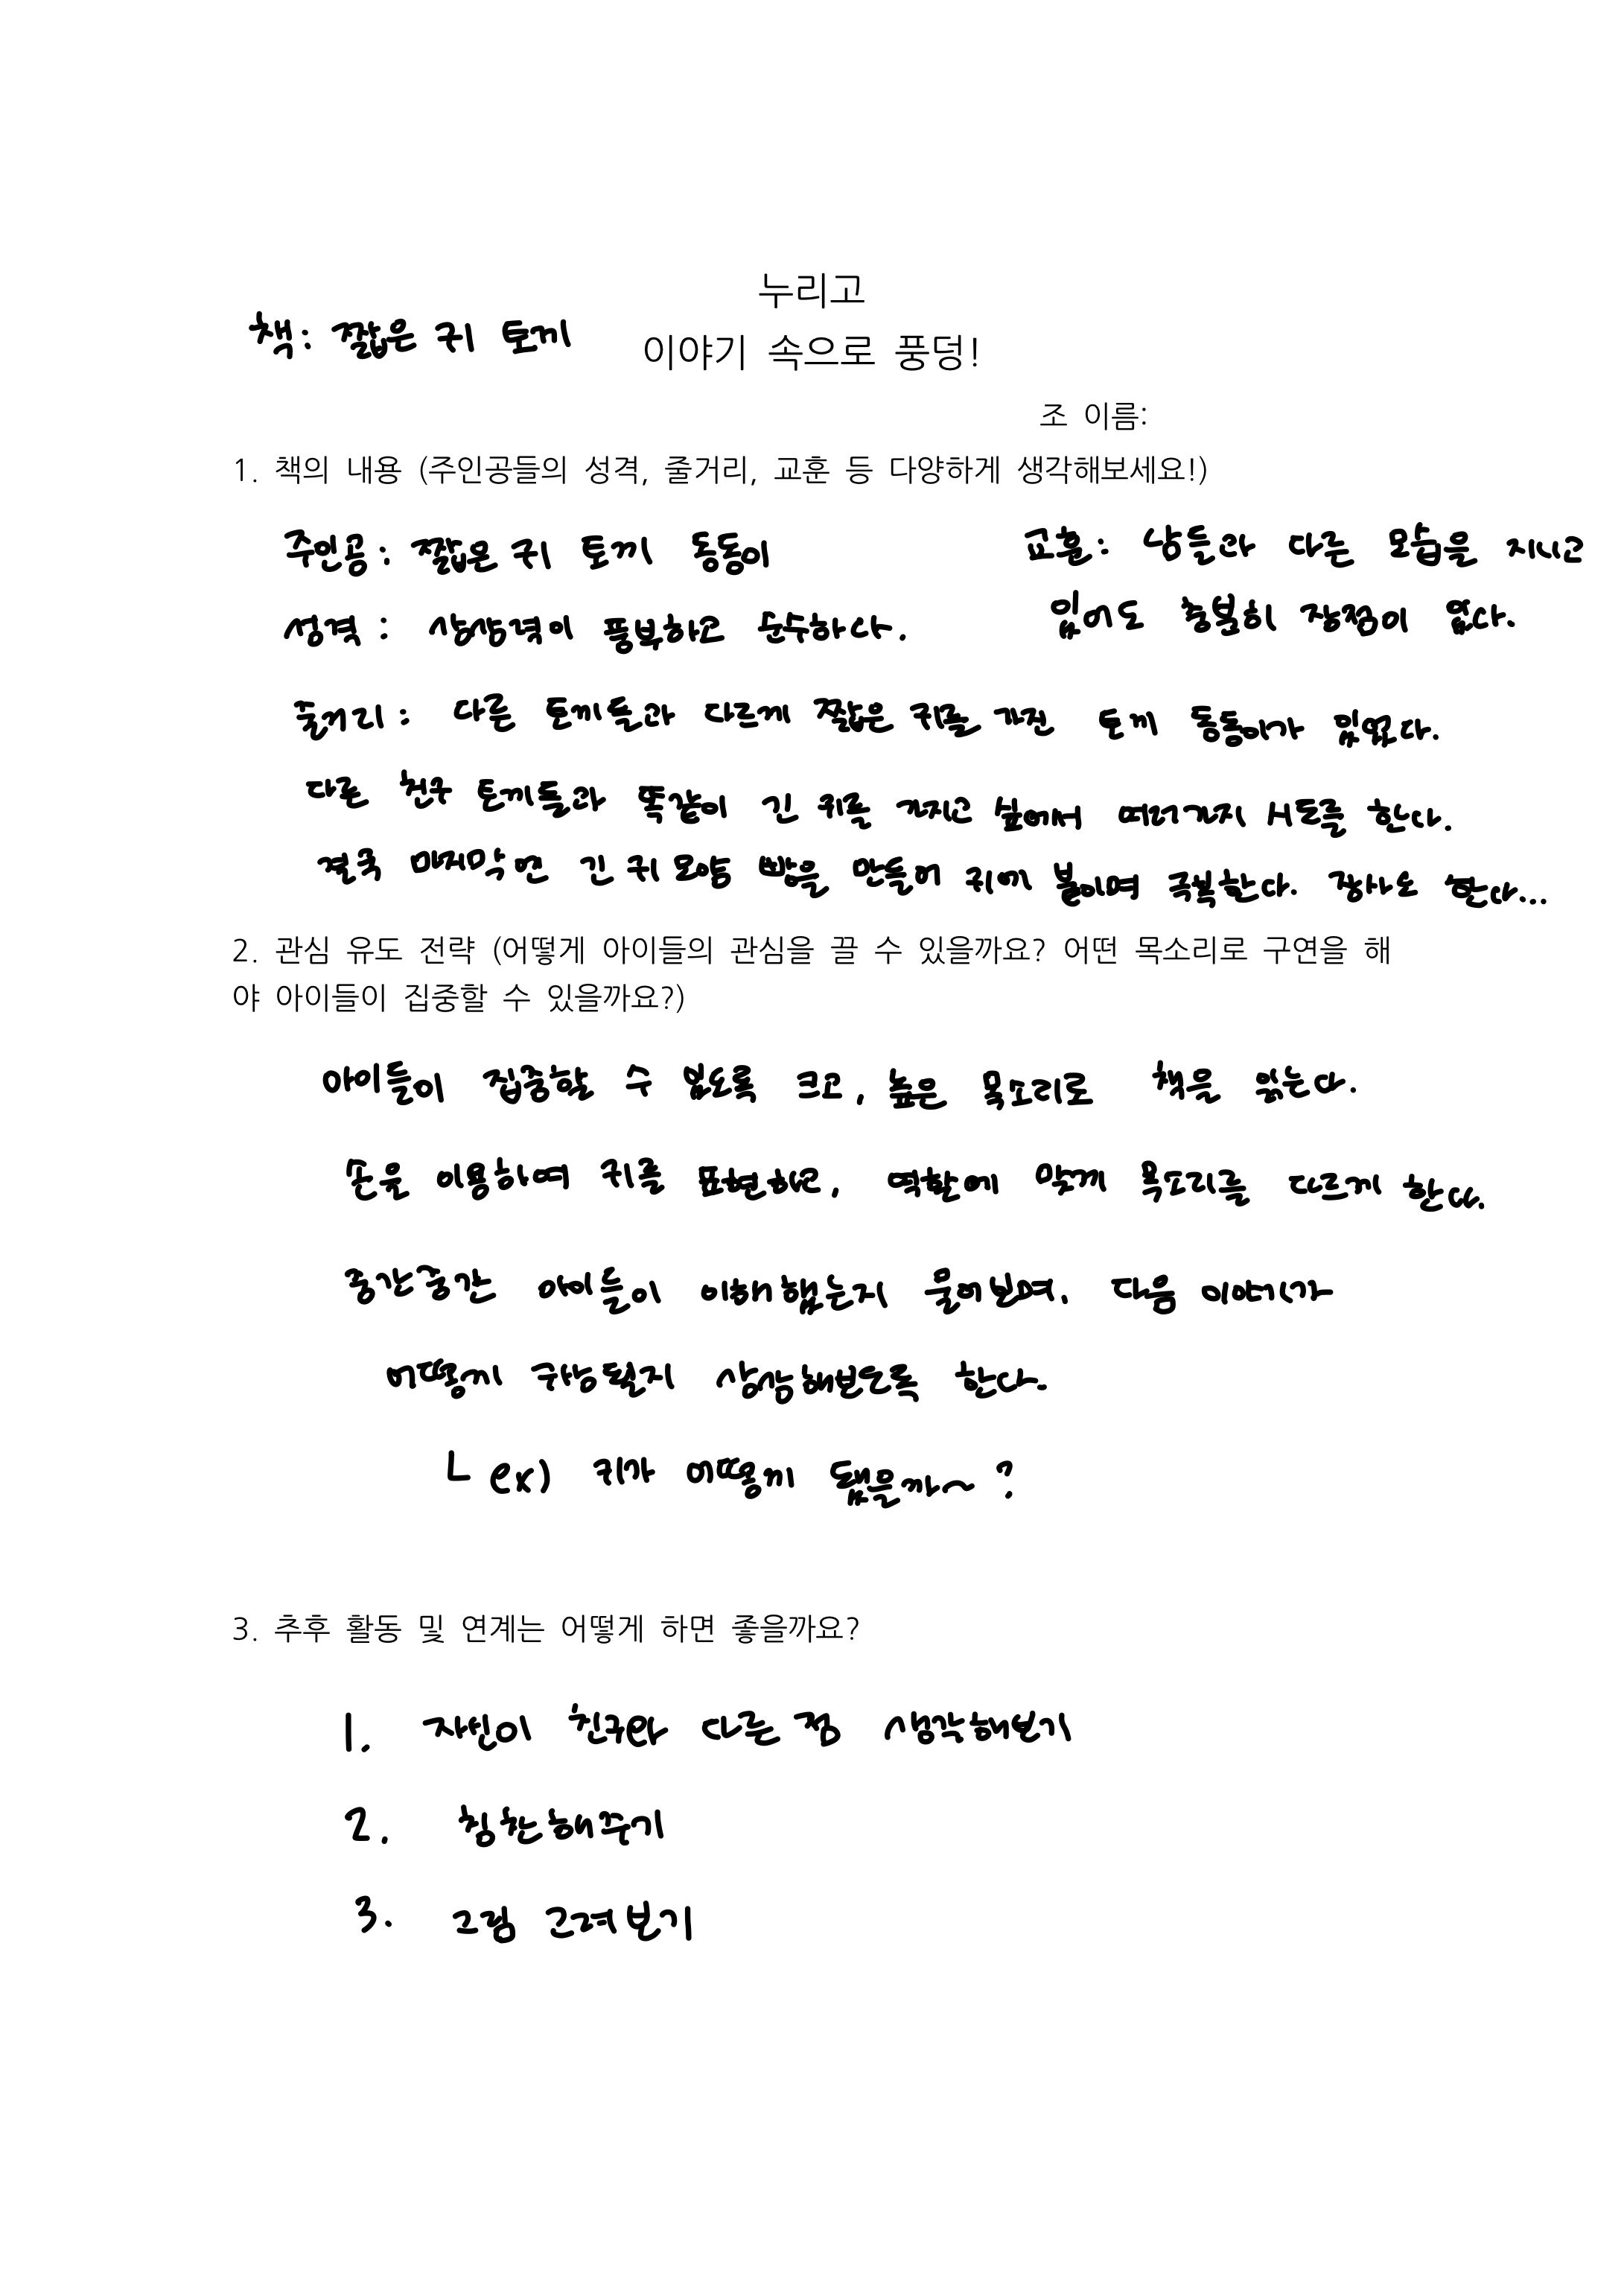 누리고
책: 짧은 귀 토끼
이야기 속으로 풍덩!
조 이름:
1. 책의 내용 (주인공들의 성격, 줄거리, 교훈 등 다양하게 생각해보세요!)
주인공 : 짧은 귀 토끼 동동이
교훈: 남들과 다른 모습을 지니고
있어도 충분히 장점이 있다.
성격 : 상상력이 풍부하고 순수하다.
줄거리 : 다른 토끼들과 다르게 짧은 귀를 가진 토끼 동동이가 있었다.
다른 친구 토끼들과 똑같이 긴 귀를 가지고 싶어서 여러가지 시도를 한다.
결국 마지막엔 긴 귀 모양 빵을 만들어 귀에 붙이며 극복한다. 장사도 한다...
2. 관심 유도 전략 (어떻게 아이들의 관심을 끌 수 있을까요? 어떤 목소리로 구연을 해
야 아이들이 집중할 수 있을까요?)
아이들이 집중할 수 있도록 크고, 높은 목소리로 책을 읽는다.
손을 이용하여 귀를 표현하고, 역할에 맞게 목소리를 다르게 한다.
중간중간 아이들이 이해했는지 물어보며, 다음 이야기가
어떻게 구상될지 상상해보도록 한다.
ㄴ ex) 귀가 어떻게 됐을까~?
3. 추후 활동 및 연계는 어떻게 하면 좋을까요?
1. 자신이 친구와 다른 점 생각해보기
2. 칭찬해주기
3. 그림 그려보기